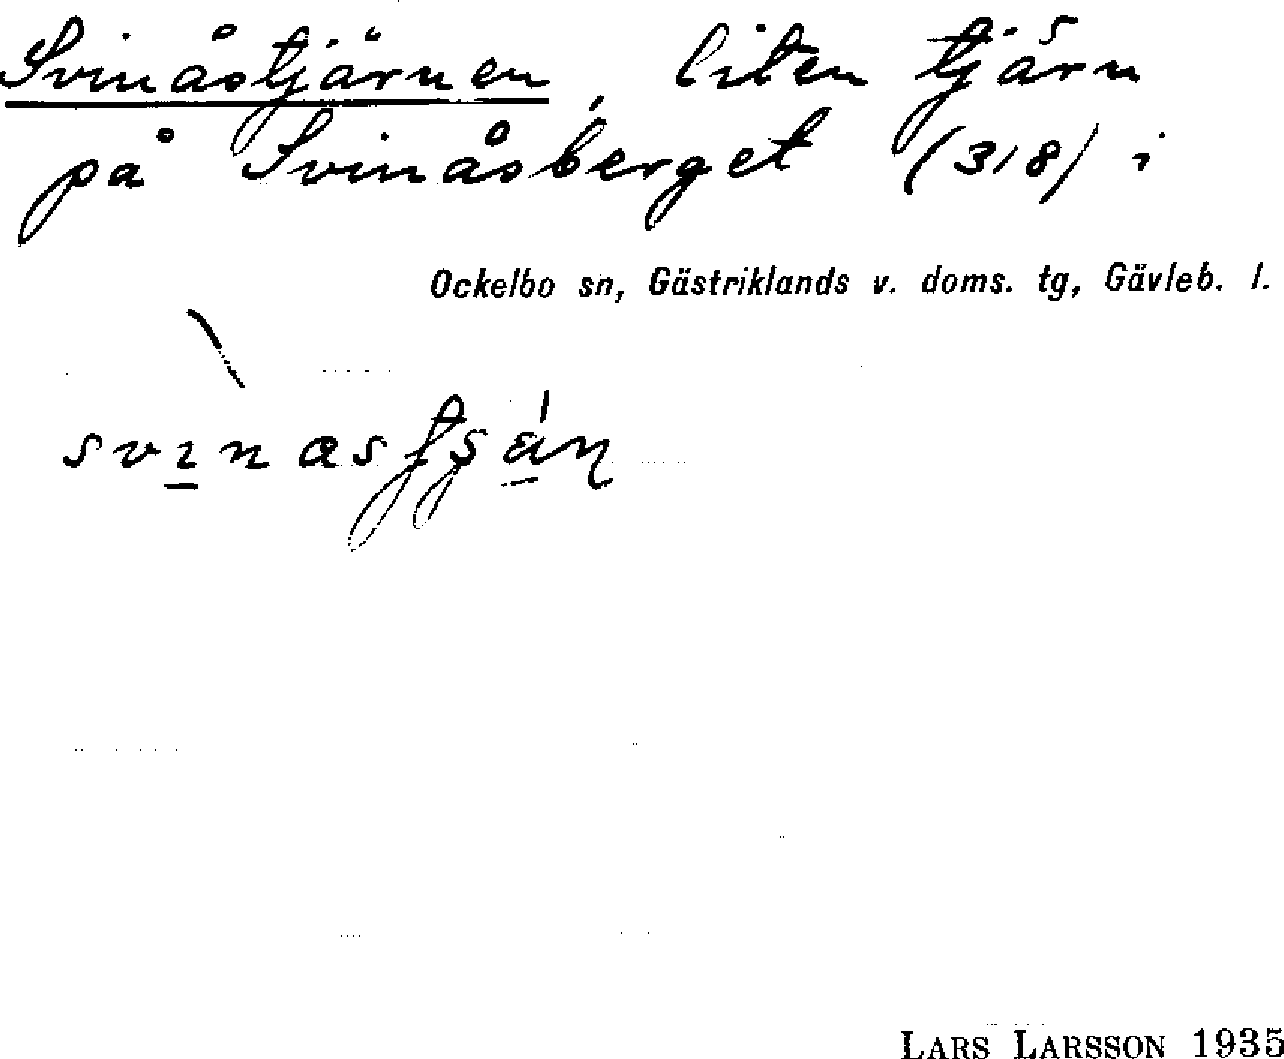 Svinåstjärnen, liten tjärn
på Svinåsberget (318) i
Ockelbo sn, Gästriklands v. doms. tg, Gävleb. l.
LARS LARSSON 1935